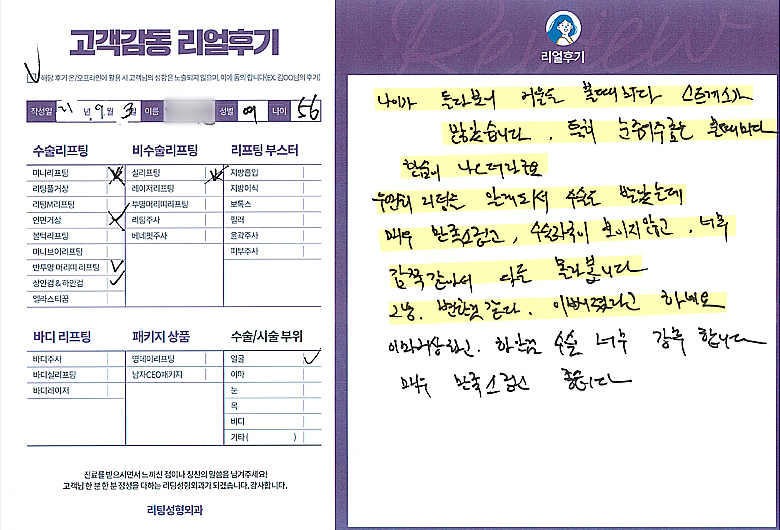 고객감동 리얼후기
해당 후기 온/오프라인에 활용 시 고객님의 성함은 노출되지 않으며, 이에 동의 합니다(EX. 김OO님의 후기)
작성일 21 년 9 월 3 일 이름 성별 여 나이 56
수술리프팅
미니리프팅
리팅풀거상
리팅M리프팅
안면거상
볼턱리프팅
미니브이리프팅
반투명 머리띠 리프팅
상안검 & 하안검
엘라스티꿈
비수술리프팅
실리프팅
레이저리프팅
투명머리띠리프팅
리팅주사
베네핏주사
리프팅 부스터
지방흡입
지방이식
보톡스
필러
윤곽주사
피부주사
바디 리프팅
바디주사
바디실리프팅
바디레이저
패키지 상품
영데이리프팅
남자CEO패키지
수술/시술 부위
얼굴
이마
눈
목
바디
기타 ( )
진료를 받으시면서 느끼신 점이나 칭찬의 말씀을 남겨주세요!
고객님 한 분 한 분 정성을 다하는 리팅성형외과가 되겠습니다. 감사합니다.
리팅성형외과
Review
리얼후기
나이가 들다보니 거울을 볼때마다 스트레스가
많았습니다. 특히 눈 주름을 볼때마다
한숨이 나오더라구요
우연히 리팅을 알게되서 수술도 받았는데
매우 만족스럽고, 수술자국이 보이지않고, 너무
감쪽같아서 다들 몰라봅니다
고생. 변한것 같다. 이뻐졌다고 하네요
이마거상. 하안검 수술 너무 강추 합니다
매우 만족스럽고 좋습니다